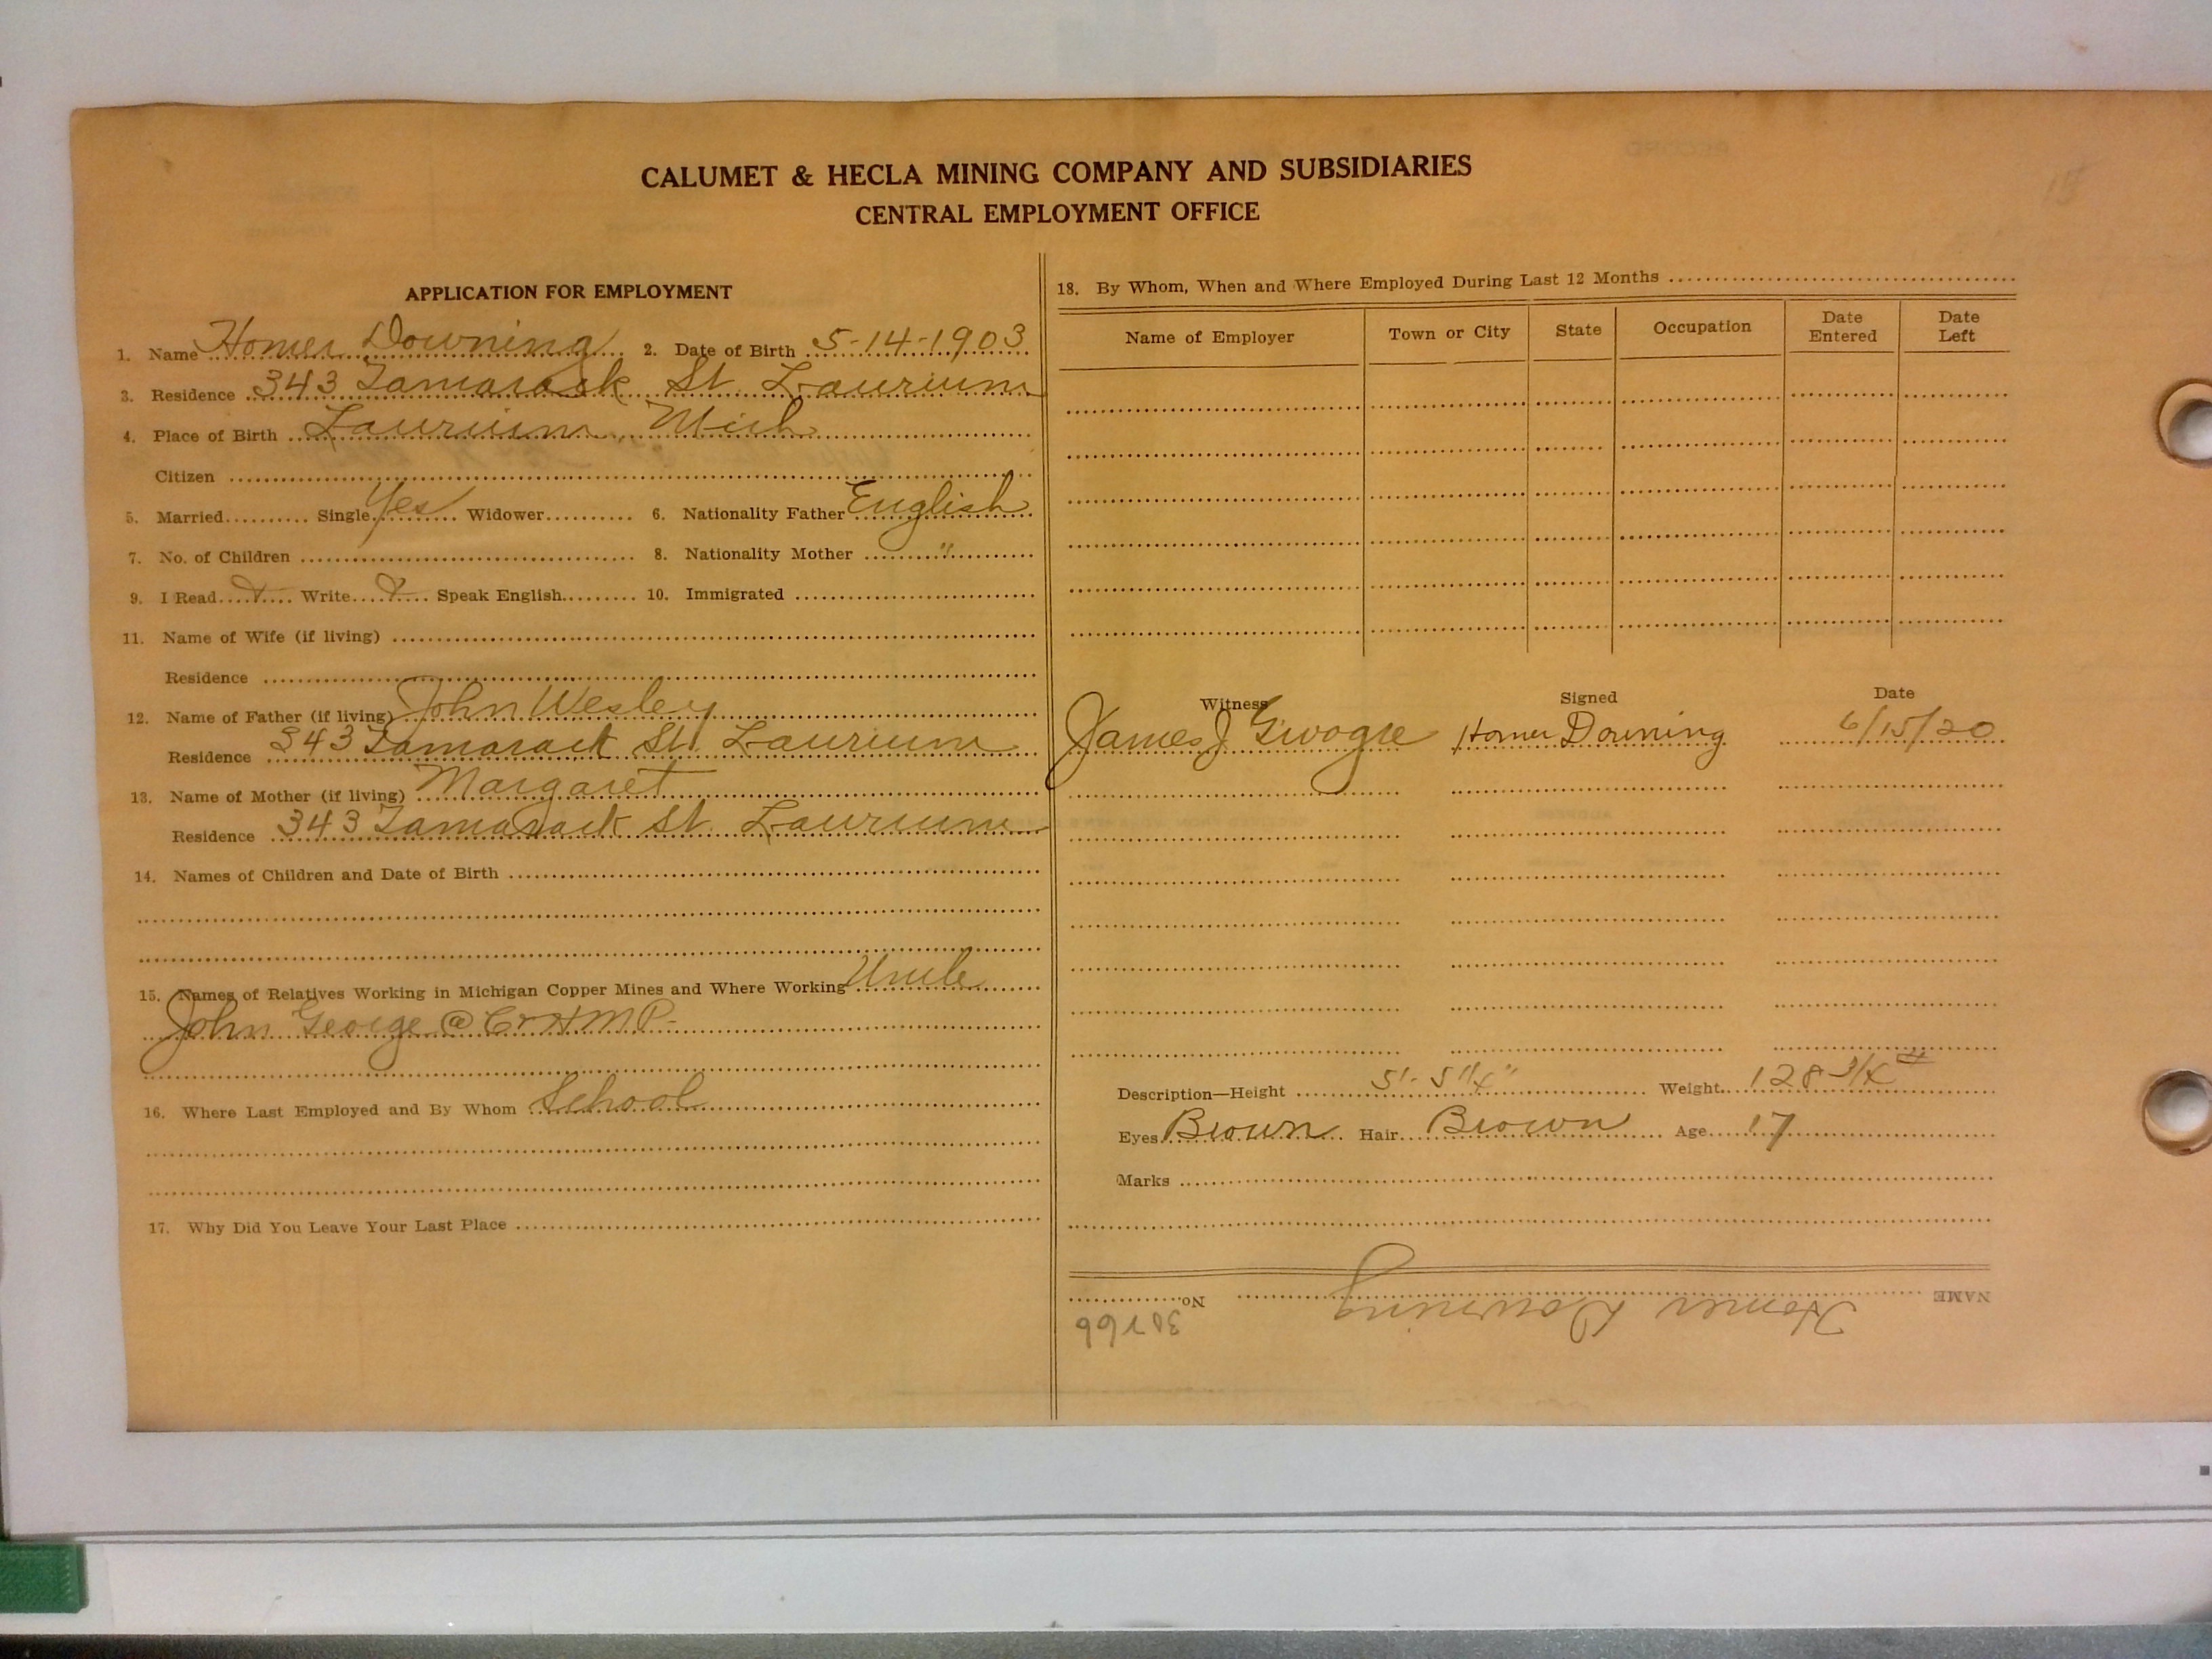 CALUMET & HECLA MINING COMPANY AND SUBSIDIARIES
CENTRAL EMPLOYMENT OFFICE
APPLICATION FOR EMPLOYMENT
1. Name Homer Downing 2. Date of Birth 5-14-1903
3. Residence 343 Tamarack St. Laurium
4. Place of Birth Laurium, Mich
Citizen
5. Married Single Yes Widower 6. Nationality Father English
7. No. of Children 8. Nationality Mother "
9. I Read Write Speak English 10. Immigrated
11. Name of Wife (if living)
Residence
12. Name of Father (if living) John Wesley
Residence 343 Tamarack St. Laurium
13. Name of Mother (if living) Margaret
Residence 343 Tamarack St. Laurium
14. Names of Children and Date of Birth
15. Names of Relatives Working in Michigan Copper Mines and Where Working Uncle
John George @ C & H M P-
16. Where Last Employed and By Whom School
17. Why Did You Leave Your Last Place
18. By Whom, When and Where Employed During Last 12 Months
Name of Employer Town or City State Occupation Date Entered Date Left
Witness Signed Date
James J Homer Downing 6/15/20
Description—Height 5'- 5 1/4" Weight 128 3/4 #
Eyes Brown Hair Brown Age 17
Marks
NAME Homer Downing No.